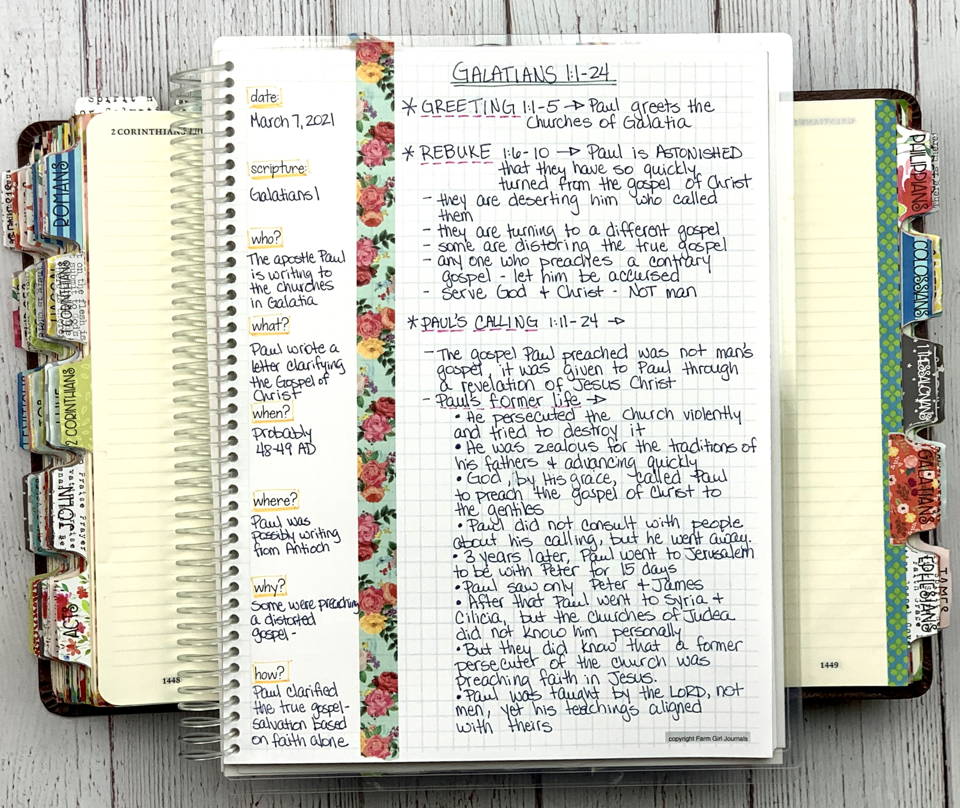 GALATIANS 1:1-24
date:
March 7, 2021
scripture:
Galatians 1
who?
The apostle Paul
is writing to
the churches
in Galatia
what?
Paul wrote a
letter clarifying
the Gospel of
Christ
when?
Probably
48-49 AD
where?
Paul was
possibly writing
from Antioch
why?
Some were preaching
a distorted
gospel -
how?
Paul clarified
the true gospel -
salvation based
on faith alone
* GREETING 1:1-5 → Paul greets the
Churches of Galatia
* REBUKE 1:6-10 → Paul is ASTONISHED
that they have so quickly
turned from the gospel of Christ
- they are deserting him who called
them
- they are turning to a different gospel
- some are distoring the true gospel
- any one who preaches a contrary
gospel - let him be accursed
- serve God + Christ - NOT man
* PAUL'S CALLING 1:11-24 →
- The gospel Paul preached was not man's
gospel, it was given to Paul through
a revelation of Jesus Christ
- Paul's former life →
• He persecuted the Church violently
and tried to destroy it
• He was zealous for the traditions of
his fathers + advancing quickly
• God, by His grace, called Paul
to preach the gospel of Christ to
the gentiles
• Paul did not consult with people
about his calling, but he went away.
• 3 years later, Paul went to Jerusalem
to be with Peter for 15 days
• Paul saw only Peter + James
• After that Paul went to Syria +
Cilicia, but the Churches of Judea
did not know him personally
• But they did know that a former
persecuter of the church was
preaching faith in Jesus.
• Paul was taught by the LORD, not
men, yet his teachings aligned
with theirs
copyright Farm Girl Journals
2 CORINTHIANS
ROMANS
CORINTHIANS
2 CORINTHIANS
JOHN
ACTS
1448
PHILIPPIANS
COLOSSIANS
THESSALONIANS
GALATIANS
EPHESIANS
JAMES
1449